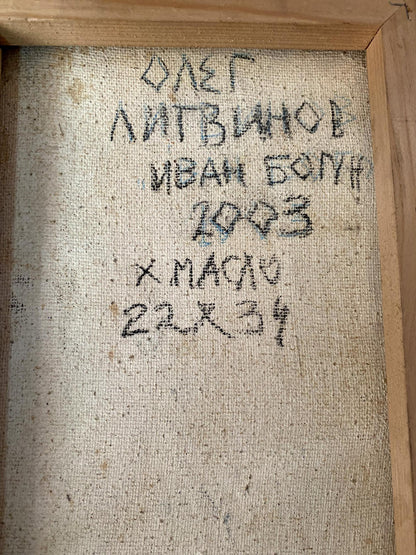 ОЛЕГ
ЛИТВИНОВ
ИВАН БОГУН
2003
Х МАСЛО
22Х34